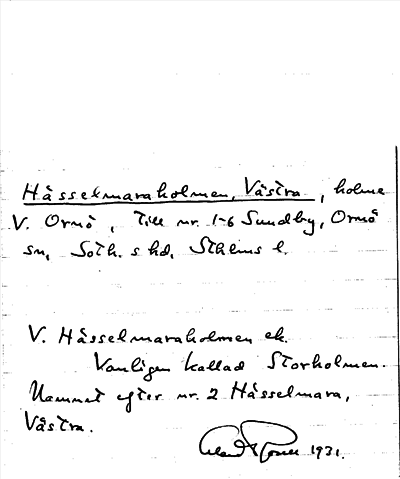 Hässelmaraholmen, Västra, holme
V. Ornö, till nr. 1-6 Sundby, Ornö
sn, Soth. s hd, Sthlms l.
V. Hässelmaraholmen ek.
Vanligen kallad Storholmen.
Namnet efter nr. 2 Hässelmara,
Västra.
1931.